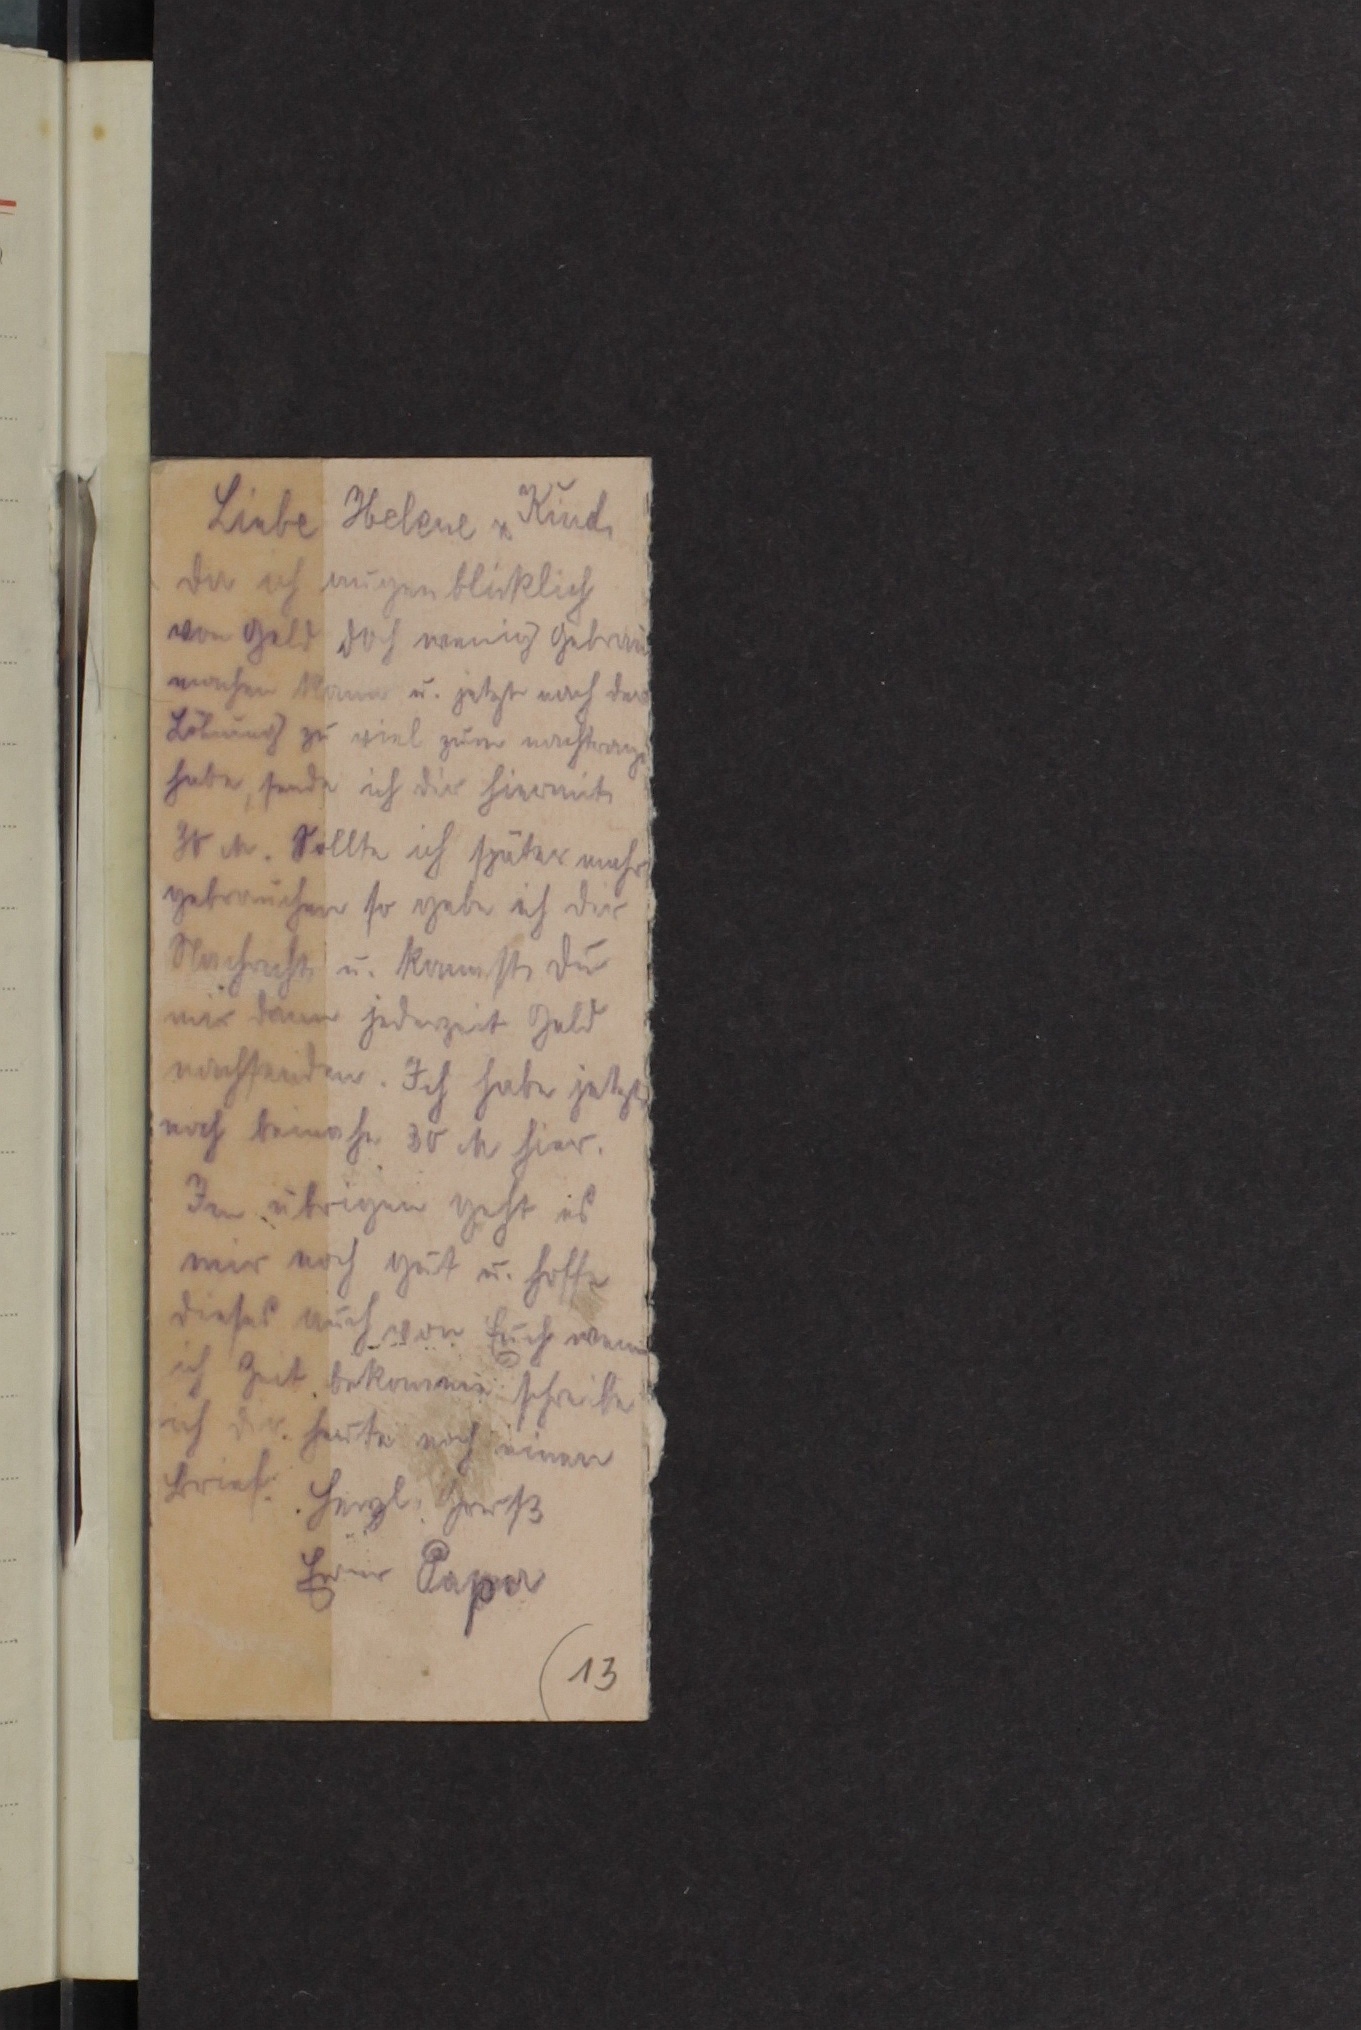 Liebe Helene u. Kind.
Da ich augenblicklich
von Geld doch wenig Gebrau
machen kann u. jetzt nach der
Löhnung zu viel zum nachtrag
habe, sende ich dir hiermit
30 M. Sollte ich später mehr
gebrauchen so gebe ich dir
Nachricht u. kannst Du
mir dann jederzeit Geld
nachsenden. Ich habe jetzt
noch beinahe 30 M hier.
Im übrigen geht es
mir noch gut u. hoffe
dieses auch von Euch wenn
ich Zeit bekomme schreibe
ich dir heute noch einen
Brief. Herzl. Gruß
Euer Papa
13